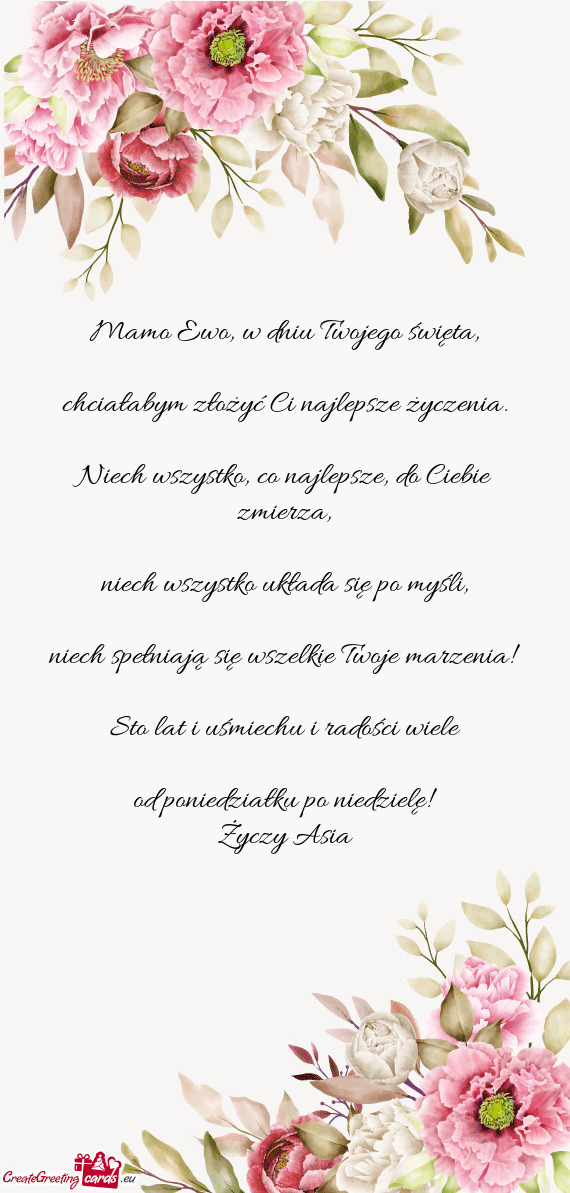 Mamo Ewo, w dniu Twojego święta,
chciałabym złożyć Ci najlepsze życzenia.
Niech wszystko, co najlepsze, do Ciebie
zmierza,
niech wszystko układa się po myśli,
niech spełniają się wszelkie Twoje marzenia!
Sto lat i uśmiechu i radości wiele
od poniedziałku po niedzielę!
Życzy Asia
CreateGreeting cards .eu